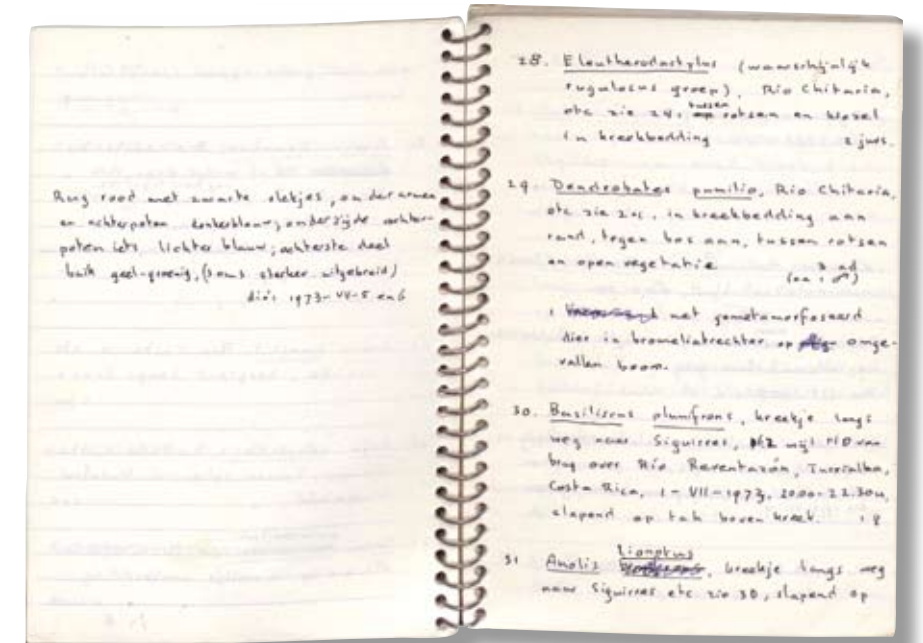 Rug rood met zwarte vlekjes, onderarmen
en achterpoten donkerblauw; onderzijde achter-
poten iets lichter blauw; achterste deel
buik geel-groenig, (soms sterker uitgebreid)
dia's 1973-VII-5 en 6
28. Eleutherodactylus (waarschijnlijk
rugulosus groep), Rio Chitaria,
etc zie 24, tussen rotsen en blad
in kreekbedding 2 juv.
29. Dendrobates pumilio, Rio Chitaria,
etc zie 24, in kreekbedding aan
rand, tegen bos aan, tussen rotsen
en open vegetatie 3 ad
1 net gemetamorfoseerd
dier in bromeliatrechter op omge-
vallen boom.
30. Basiliscus plumifrons, kreekje langs
weg naar Siquirres, 2 mijl NO van
brug over Río Reventazón, Turrialba,
Costa Rica, 1-VII-1973, 20.00-22.30u,
slapend op tak boven kreek.
31 Anolis lionotus, kreekje langs weg
naar Siquirres etc zie 30, slapend op